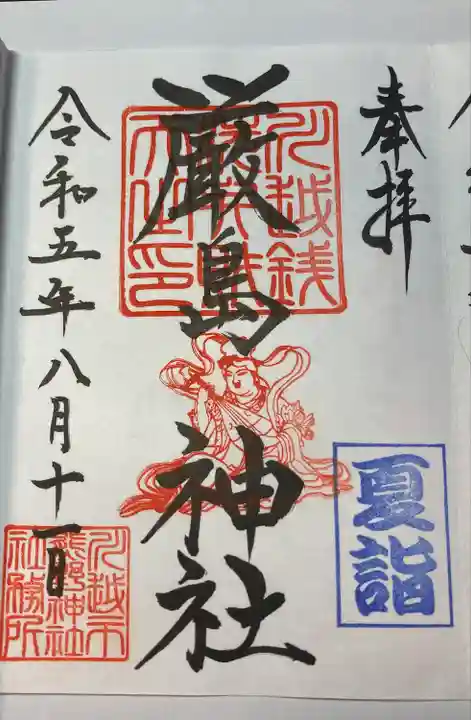 奉拝
夏詣
厳島神社
川越銭
令和五年八月十一日
川越市
熊野神社
社務所